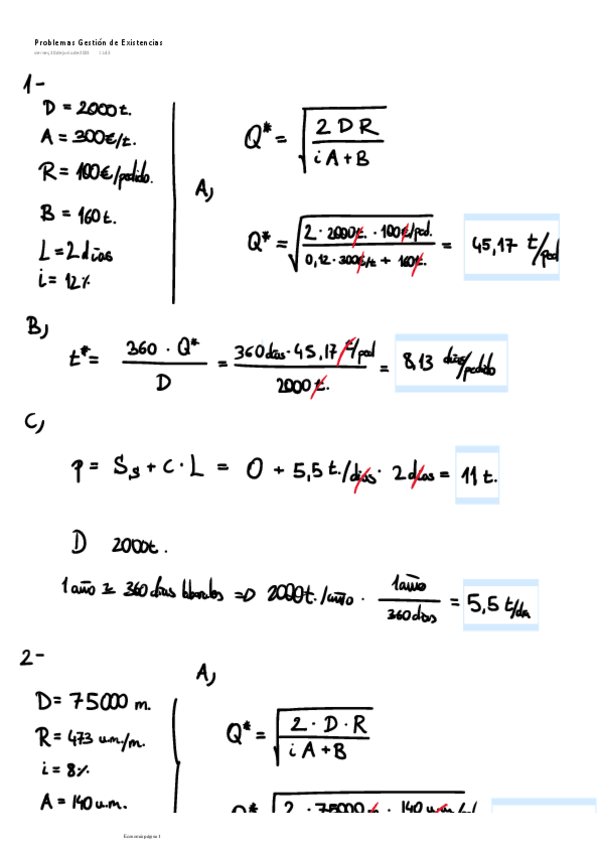 Problemas Gestión de Existencias
1-
D = 2000t.
A = 300€/t.
R = 100€/pedido.
B = 160t.
L = 2 días
i = 12%
A)
Q* = √(2 D R / i A + B)
Q* = √(2 · 2000t. · 100€/ped. / 0,12 · 300€/t + 160t.) = 45,17 t/ped
B)
t* = 360 · Q* / D = 360 días · 45,17 t/ped / 2000 t. = 8,13 días/pedido
C)
P = S,s + C · L = 0 + 5,5 t./días · 2 días = 11 t.
D 2000t.
1 año ≃ 360 días laborales ⇒ 2000t./año · 1 año / 360 días = 5,5 t/día
2-
D = 75000 m.
R = 473 u.m/m.
i = 8%
A = 140 u.m.
A)
Q* = √(2 · D · R / i A + B)
Q* √ 2 · 75000 · 140 u.m
Economía página 1